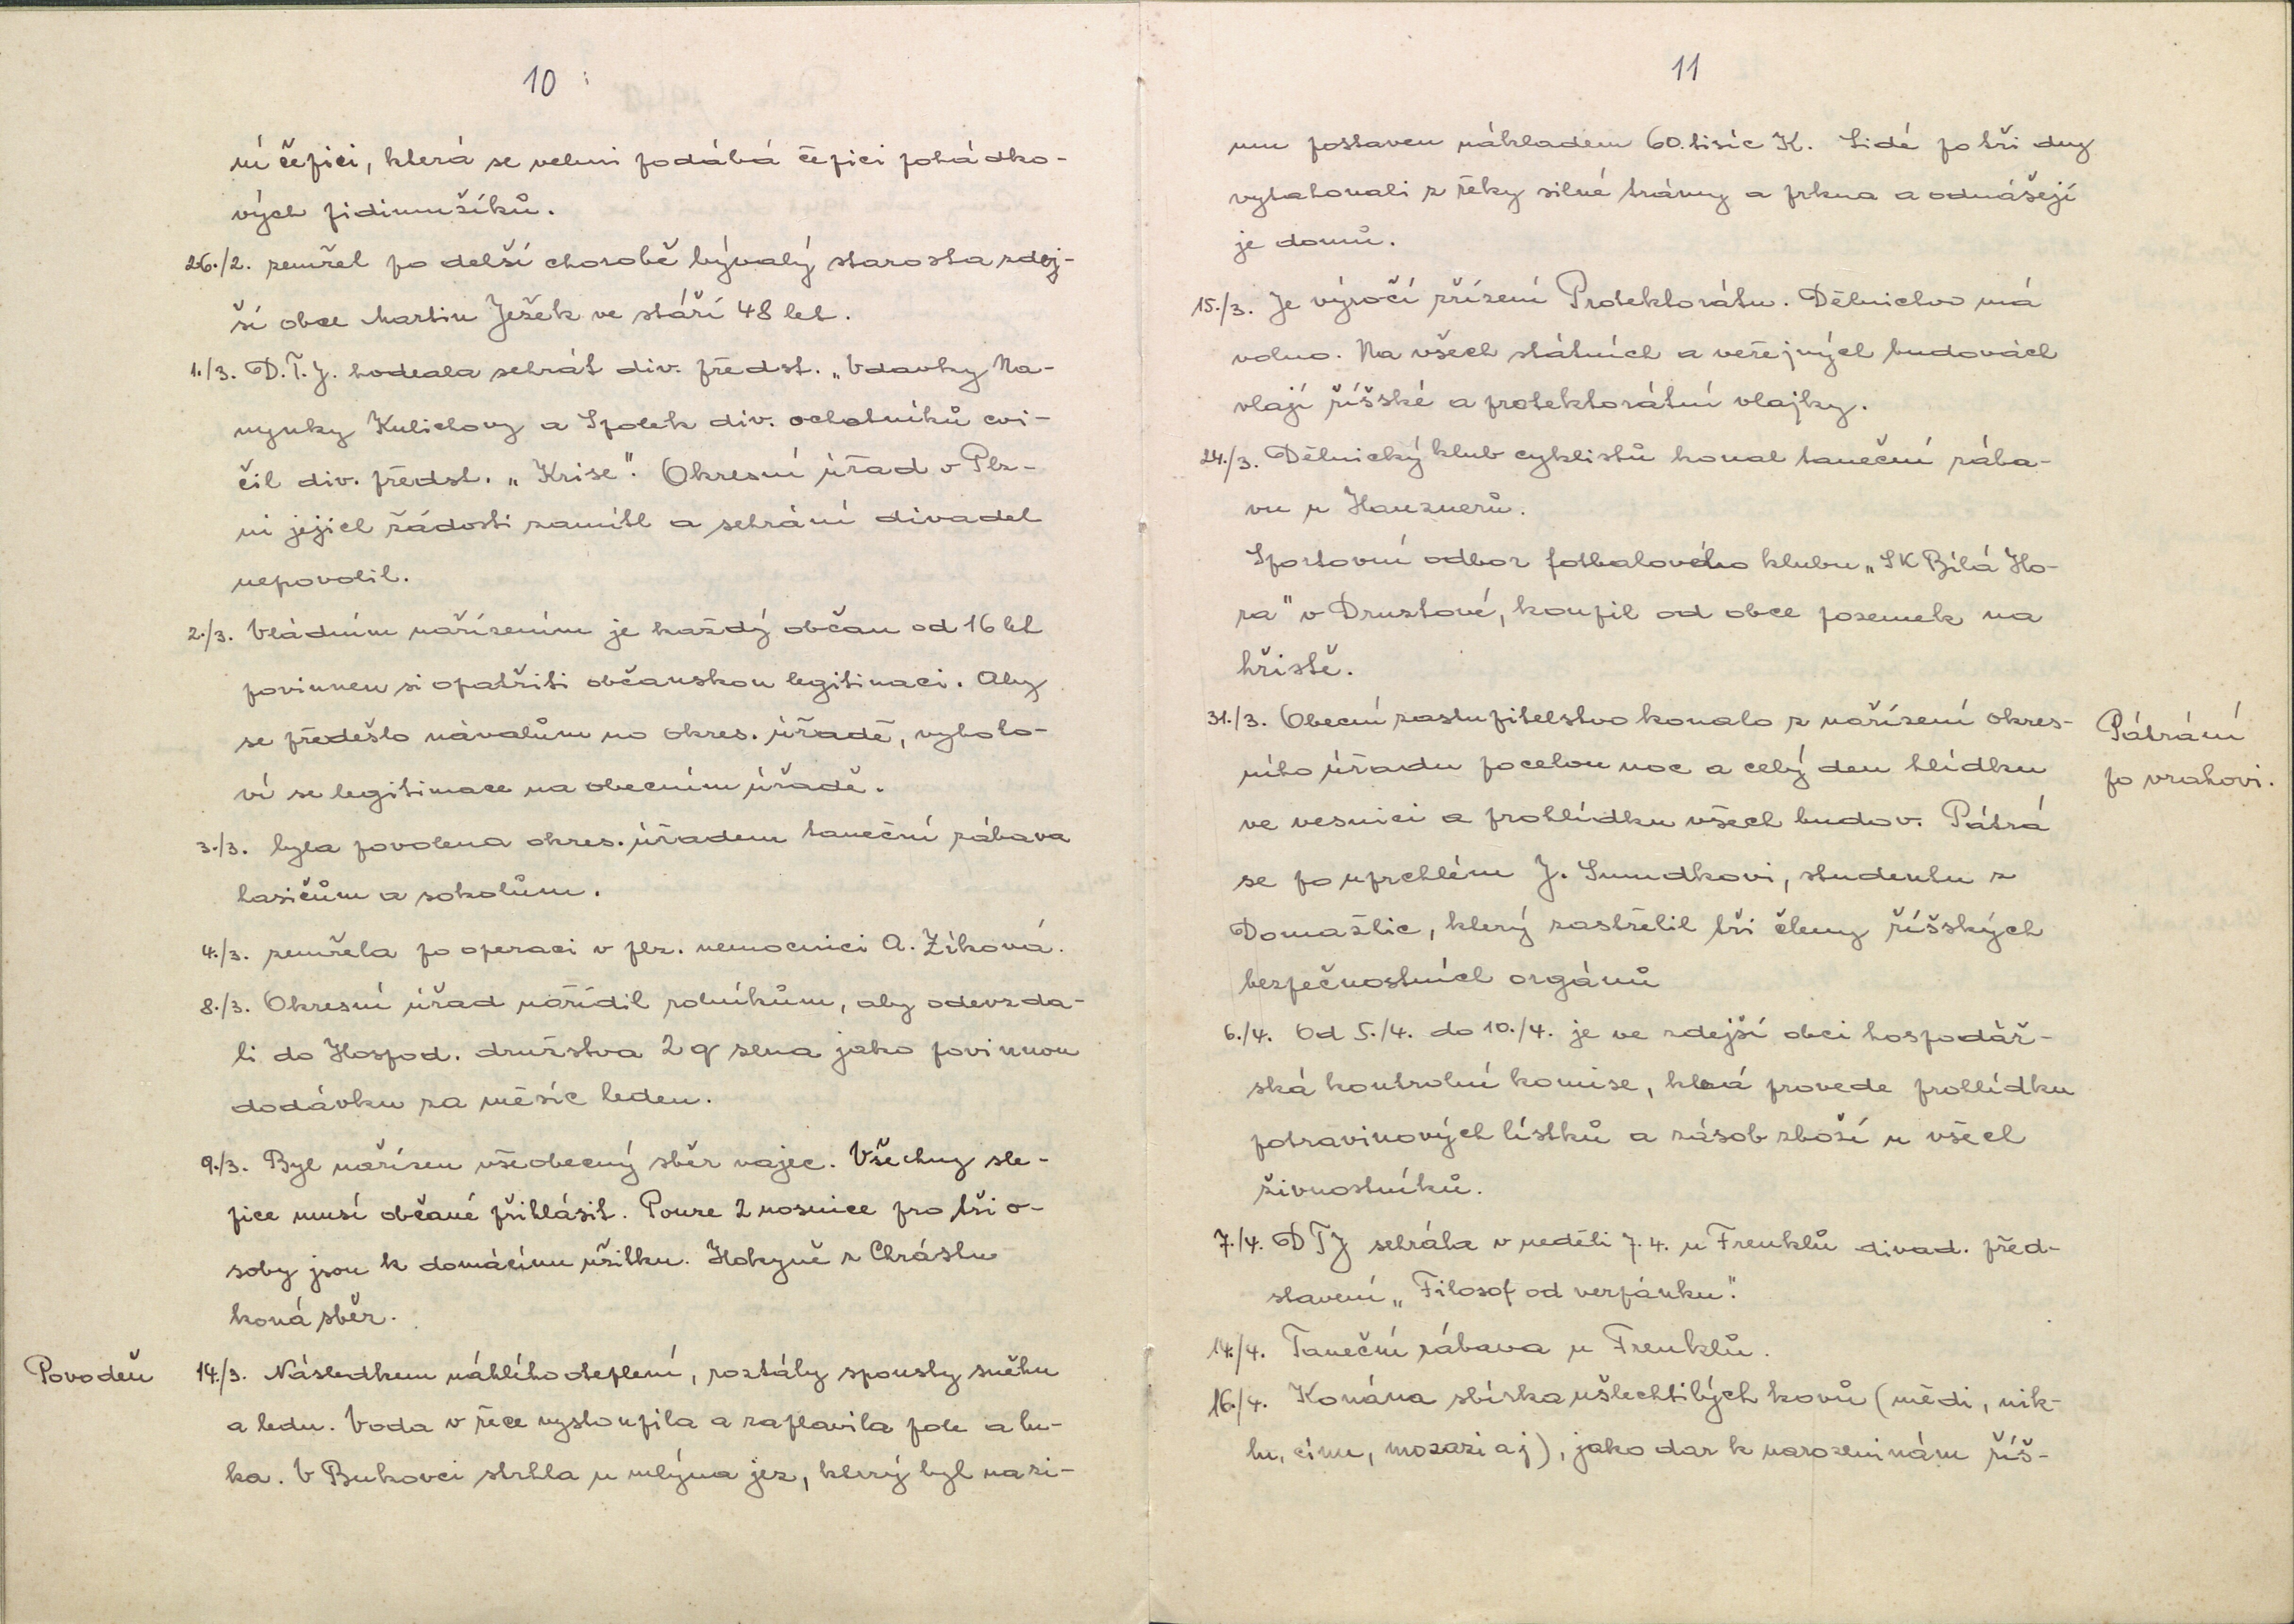 10
ní čepici, která se velmi podábá čepici pohádko-
vých pidimužíků.
26./2. zemřel po delší chorobě bývalý starosta zdej-
ší obce Martin Ježek ve stáří 48 let.
1./3. D.T.J. hodlala sehrát div. předst. „Vdavky Na-
nynky Kulichovy a Spolek div. ochotníků cvi-
čil div. předst. „Krise". Okresní úřad v Plz-
ni jejich žádosti zamítl a sehrání divadel
nepovolil.
2./3. Vládním nařízením je každý občan od 16 let
povinnen si opatřiti občanskou legitimaci. Aby
se předešlo návalům na okres. úřadě, vyhoto-
ví se legitimace na obecním úřadě.
3./3. byla povolena okres. úřadem taneční zábava
hasičům a sokolům.
4./3. zemřela po operaci v plz. nemocnici A. Zíková.
8./3. Okresní úřad nařídil rolníkům, aby odevzda-
li do Hospod. družstva 2 q sena jako povinnou
dodávku za měsíc leden.
9./3. Byl nařízen všeobecný sběr vajec. Všechny sle-
pice musí občané přihlásit. Pouze 2 nosnice pro tři o-
soby jsou k domácímu užitku. Hokyně z Chrástu
koná sběr.
Povodeň
14./3. Následkem náhlího oteplení, roztály spousty sněhu
a ledu. Voda v řece vystoupila a zaplavila pole a lu-
ka. V Bukovci strhla u mlýna jez, který byl na zi-
11
mu postaven nákladem 60.tisíc K. Lidé po tři dny
vytahovali z řeky silné trámy a prkna a odnášejí
je domů.
15./3. Je výročí zřízení Protektorátu. Dělnictvo má
volno. Na všech státních a veřejných budovách
vlají říšské a protektorátní vlajky.
24./3. Dělnický klub cyklistů konal taneční zába-
vu u Hauznerů.
Sportovní odbor fotbalového klubu „SK Bílá Ho-
ra" v Druztové, koupil od obce pozemek na
hřistě.
31./3. Obecní zastupitelstvo konalo z nařízení okres-
ního úřadu po celou noc a celý den hlídku
ve vesnici a prohlídku všech budov. Pátrá
se po uprchlém J. Smudkovi, studentu z
Domažlic, který zastřelil tři členy říšských
bezpečnostních orgánů
Pátrání
po vrahovi.
6./4. Od 5./4. do 10./4. je ve zdejší obci hospodář-
ská kontrolní komise, která provede prohlídku
potravinových lístků a zásob zboží u všech
živnostníků.
7./4. DTJ sehrála v neděli 7.4. u Frenklů divad. před-
stavení „Filosof od verpánku".
14./4. Taneční zábava u Frenklů.
16./4. Konána sbírka ušlechtilých kovů (mědi, nik-
lu, cínu, mozazi aj), jako dar k narozeninám říš-